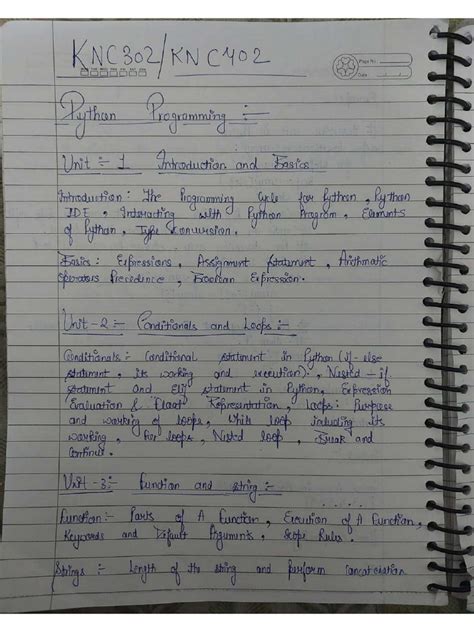 KNC302/KNC402
Page No.
Date
Python Programming :-
Unit :- 1 Introduction and Basics
Introduction : The Programming Cycle for Python , Python
IDE , Interacting with Python Program , Elements
of Python , Type Conversion .
Basics : Expressions , Assignment Statement , Arithmatic
Operators Precedence , Boolean Expression .
Unit - 2 :- Conditionals and Loops :-
Conditionals : Conditional statement in Python (if - else
statement , its working and execution) , Nested - if
statement and Elif statement in Python , Expression
Evaluation & Float Representation , Loops : Purpose
and working of loops , While loop including its
working , For loop , Nested loop , Break and
Continue .
Unit - 3 :- Function and string :-
Function :- Parts of A Function , Execution of A Function ,
Keywords and Default Arguments , Scope Rules .
Strings :- Length of the string and perform Concatenation